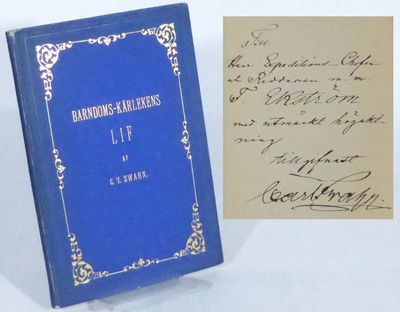 BARNDOMS-KÄRLEKENS
LIF
AF
C. V. SWAHN.
Herr Expeditions-Chefen
Riddaren m. m.
F. EKSTRÖM
med utmärkt högakt-
ning
Carl Swahn.